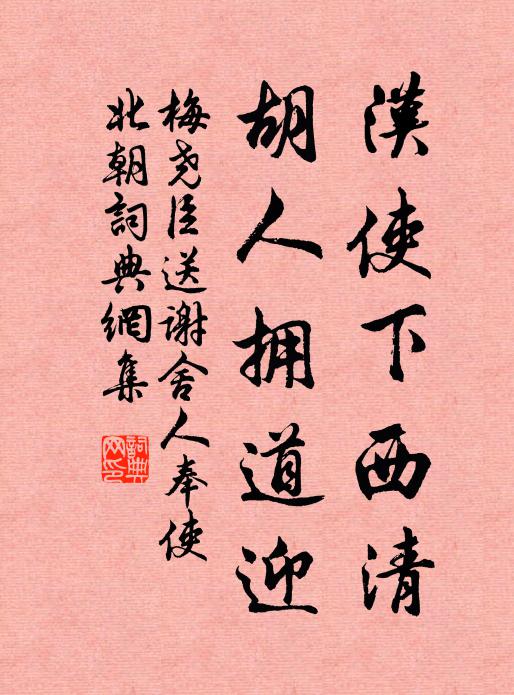 漢使下西清
胡人拥道迎
梅尧臣送謝舍人奉使
北朝詞典網集
詞典网印